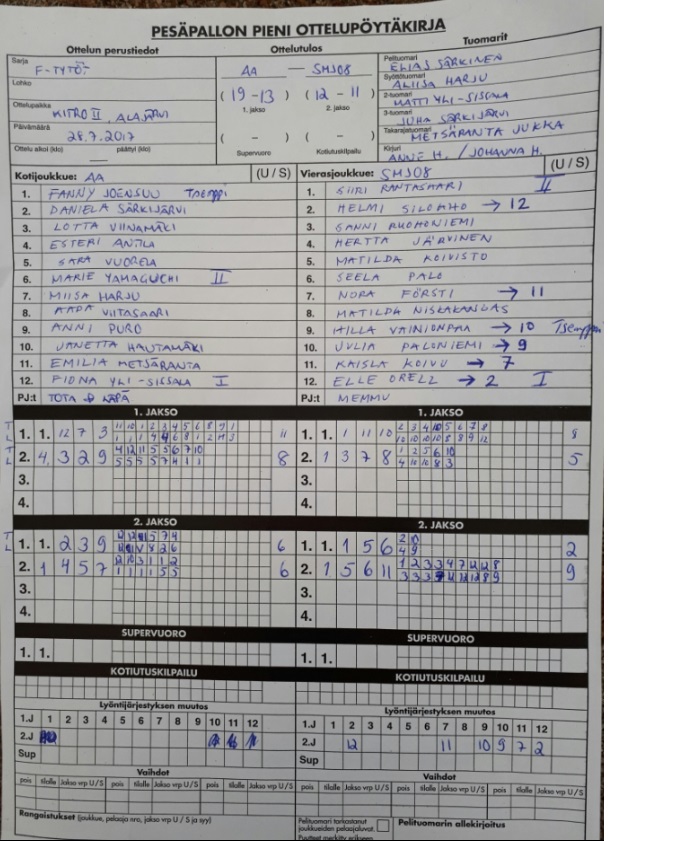 PESÄPALLON PIENI OTTELUPÖYTÄKIRJA
Ottelun perustiedot
Ottelutulos
Tuomarit
Sarja
F-TYTÖT
AA — SMJ08
Pelituomari
ELIAS SÄRKINEN
Lohko
Syöttötuomari
ALIISA HARJU
(19-13) (12-11)
1. jakso 2. jakso
2-tuomari
MATTI YLI-SISSALA
Ottelupaikka
KITRO II, ALAJÄRVI
3-tuomari
JUHA SÄRKIJÄRVI
Päivämäärä
28.7.2017
( - ) ( - )
Takarajatuomari
METSÄRANTA JUKKA
Ottelu alkoi (klo) päättyi (klo)
Supervuoro Kotiutuskilpailu
Kirjuri
ANNE H. / JOHANNA H.
Kotijoukkue: AA (U / S)
Vierasjoukkue: SMJ08 (U / S)
1. FANNY JOENSUU Tsemppi
1. SIIRI RANTASAARI II
2. DANIELA SÄRKIJÄRVI
2. HELMI → 12
3. LOTTA VIINAMÄKI
3. SANNI RUOHONIEMI
4. ESTERI ANTILA
4. HERTTA JÄRVINEN
5. SARA VUORELA
5. MATILDA KOIVISTO
6. MARIE YAMAGUCHI II
6. SEELA PALO
7. MIISA HARJU
7. NORA FÖRSTI → 11
8. AADA VIITASAARI
8. MATILDA NISKAKANGAS
9. ANNI PURO
9. HILLA VAINIONPÄÄ → 10 Tsemppi
10. JANETTA HAUTAMÄKI
10. JULIA PALONIEMI → 9
11. EMILIA METSÄRANTA
11. KAISLA KOIVU → 7
12. FIONA YLI-SISSALA I
12. ELLE ORELL → 2 I
PJ:t TOTA
PJ:t MEMMU
1. JAKSO
1. JAKSO
T
L
1. 1. 12 7 3 11 10 1 2 3 4 5 6 8 9 1 11
1. 1. 1 11 10 2 3 4 10 5 6 7 8 8
12 10 10 10 8 8 9 12
T
L
2. 4. 3 2 9 4 12 11 5 5 6 7 10 8
5 5 5 5 7 4 1 1
2. 1 3 7 8 1 2 5 6 10 5
4 10 10 8 3
3.
3.
4.
4.
2. JAKSO
2. JAKSO
T
L
1. 1. 2 3 9 6
1. 1. 1 5 6 2 10 2
4 9
2. 1 4 5 7 12 10 3 1 1 2 6
1 1 1 1 5 5
2. 1 5 6 11 1 2 3 3 4 7 12 12 8 9
3.
3.
4.
4.
SUPERVUORO
SUPERVUORO
1. 1.
1. 1.
KOTIUTUSKILPAILU
KOTIUTUSKILPAILU
Lyöntijärjestyksen muutos
Lyöntijärjestyksen muutos
1.J 1 2 3 4 5 6 7 8 9 10 11 12
1.J 1 2 3 4 5 6 7 8 9 10 11 12
2.J
2.J 12 11 10 9 7 2
Sup
Sup
Vaihdot
Vaihdot
pois tilalle Jakso vrp U / S pois tilalle Jakso vrp U / S
pois tilalle Jakso vrp U / S pois tilalle Jakso vrp U / S
Rangaistukset (joukkue, pelaaja nro, jakso vrp U / S ja syy)
Pelituomari tarkastanut
joukkueiden pelaajaluvat:
Pelituomarin allekirjoitus